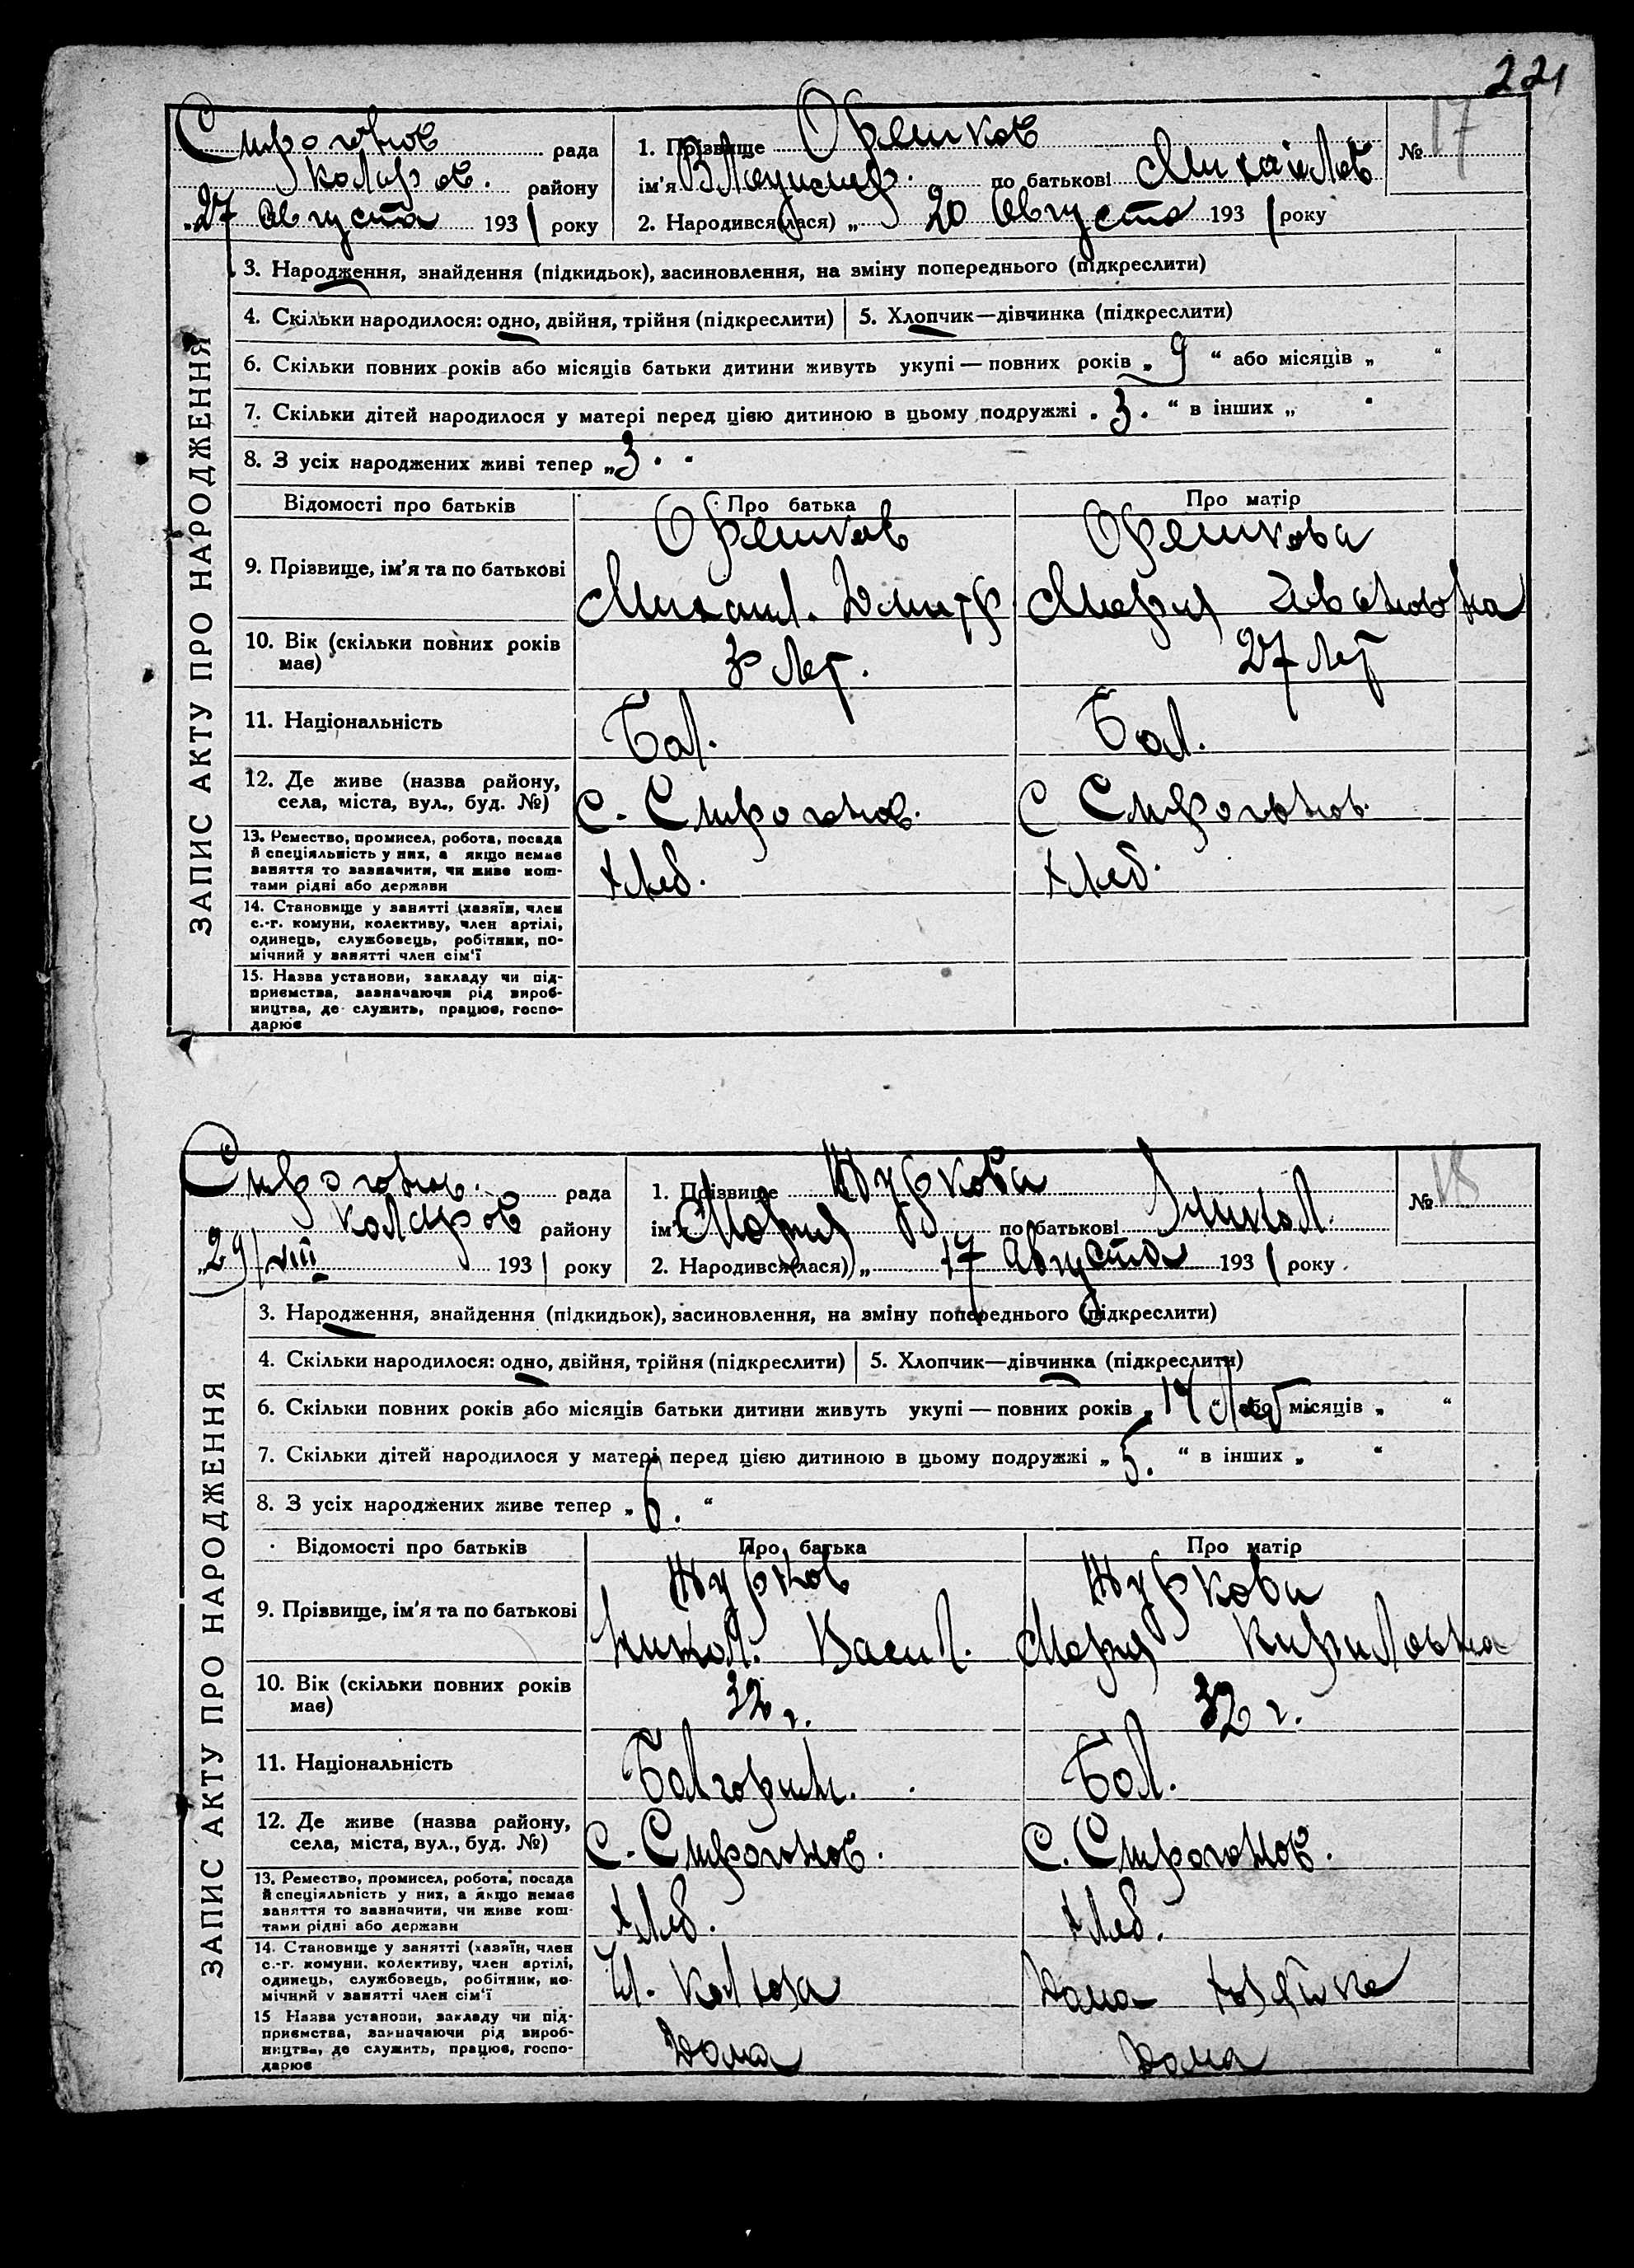 221
Сирогонов рада
Коларов. району
„27 Августа 1931 року
1. Прізвище Орешков
ім'я Владимир. по батькові Михайлов
2. Народився(лася) „ 20 Августа 1931 року
№ 17
ЗАПИС АКТУ ПРО НАРОДЖЕННЯ
3. Народження, знайдення (підкидьок), засиновлення, на зміну попереднього (підкреслити)
4. Скільки народилося: одно, двійня, трійня (підкреслити) 5. Хлопчик—дівчинка (підкреслити)
6. Скільки повних років або місяців батьки дитини живуть укупі — повних років „ 9 “ або місяців „ “
7. Скільки дітей народилося у матері перед цією дитиною в цьому подружжі „ 3. “ в інших „ “
8. З усіх народжених живі тепер „ 3 “
Відомості про батьків Про батька Про матір
9. Прізвище, ім'я та по батькові
Орешков
Михаил. Дмитр
Орешкова
Мария Ивановна
10. Вік (скільки повних років має)
лет.
27 лет
11. Національність Бол. Бол.
12. Де живе (назва району, села, міста, вул., буд. №)
С. Сирогонов. С Сирогонов.
13. Ремество, промисел, робота, посада
й спеціяльність у них, а якщо немає
заняття то зазначити, чи живе кош-
тами рідні або держави
Хлеб. Хлеб.
14. Становище у занятті (хазяїн, член
с.-г. комуни, колективу, член артілі,
одинець, службовець, робітник, по-
мічний у занятті член сім'ї
15. Назва установи, закладу чи під-
приємства, зазначаючи рід вироб-
ництва, де служить, працює, госпо-
дарює
Сирогонов. рада
Коларов району
„29/VIII 1931 року
1. Прізвище Журкова
ім'я Мария по батькові Никол.
2. Народився(лася) „ 17 Августа 1931 року
№ 18
ЗАПИС АКТУ ПРО НАРОДЖЕННЯ
3. Народження, знайдення (підкидьок), засиновлення, на зміну попереднього (підкреслити)
4. Скільки народилося: одно, двійня, трійня (підкреслити) 5. Хлопчик—дівчинка (підкреслити)
6. Скільки повних років або місяців батьки дитини живуть укупі — повних років „ 14 лет “ або місяців „ “
7. Скільки дітей народилося у матері перед цією дитиною в цьому подружжі „ 5. “ в інших „ “
8. З усіх народжених живе тепер „ 6. “
Відомості про батьків Про батька Про матір
9. Прізвище, ім'я та по батькові
Журков
Никол. Васил.
Журкова
Мария Кириловна
10. Вік (скільки повних років має)
32 г. 32 г.
11. Національність Болгорин. Бол.
12. Де живе (назва району, села, міста, вул., буд. №)
С. Сирогонов. С. Сирогонов.
13. Ремество, промисел, робота, посада
й спеціяльність у них, а якщо немає
заняття то зазначити, чи живе кош-
тами рідні або держави
Хлеб. Хлеб.
14. Становище у занятті (хазяїн, член
с.-г. комуни, колективу, член артілі,
одинець, службовець, робітник, по-
мічний у занятті член сім'ї
Чл. Колхоза Дома хозяйка
15 Назва установи, закладу чи під-
приємства, зазначаючи рід вироб-
ництва, де служить, працює, госпо-
дарює
Дома Дома